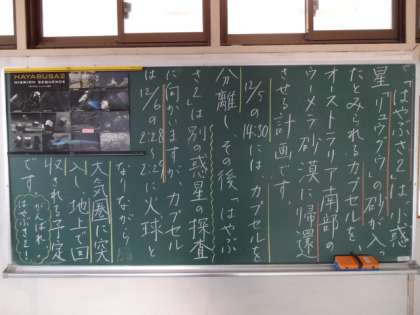 「はやぶさ2」は、小惑
星「リュウグウ」の砂が入っ
たとみられるカプセルを、
オーストラリア南部の
ウーメラ砂漠に帰還
させる計画です。
12/5の14:30には、カプセルを
分離し、その後「はやぶ
さ2」は別の惑星の探査
に向かいますが、カプセル
は12/6の2:28~2:29に火球と
なりながら
大気圏に突
入し、地上で回
収される予定
です。
がんばれ、
はやぶさ2!
HAYABUSA2
MISSION SEQUENCE